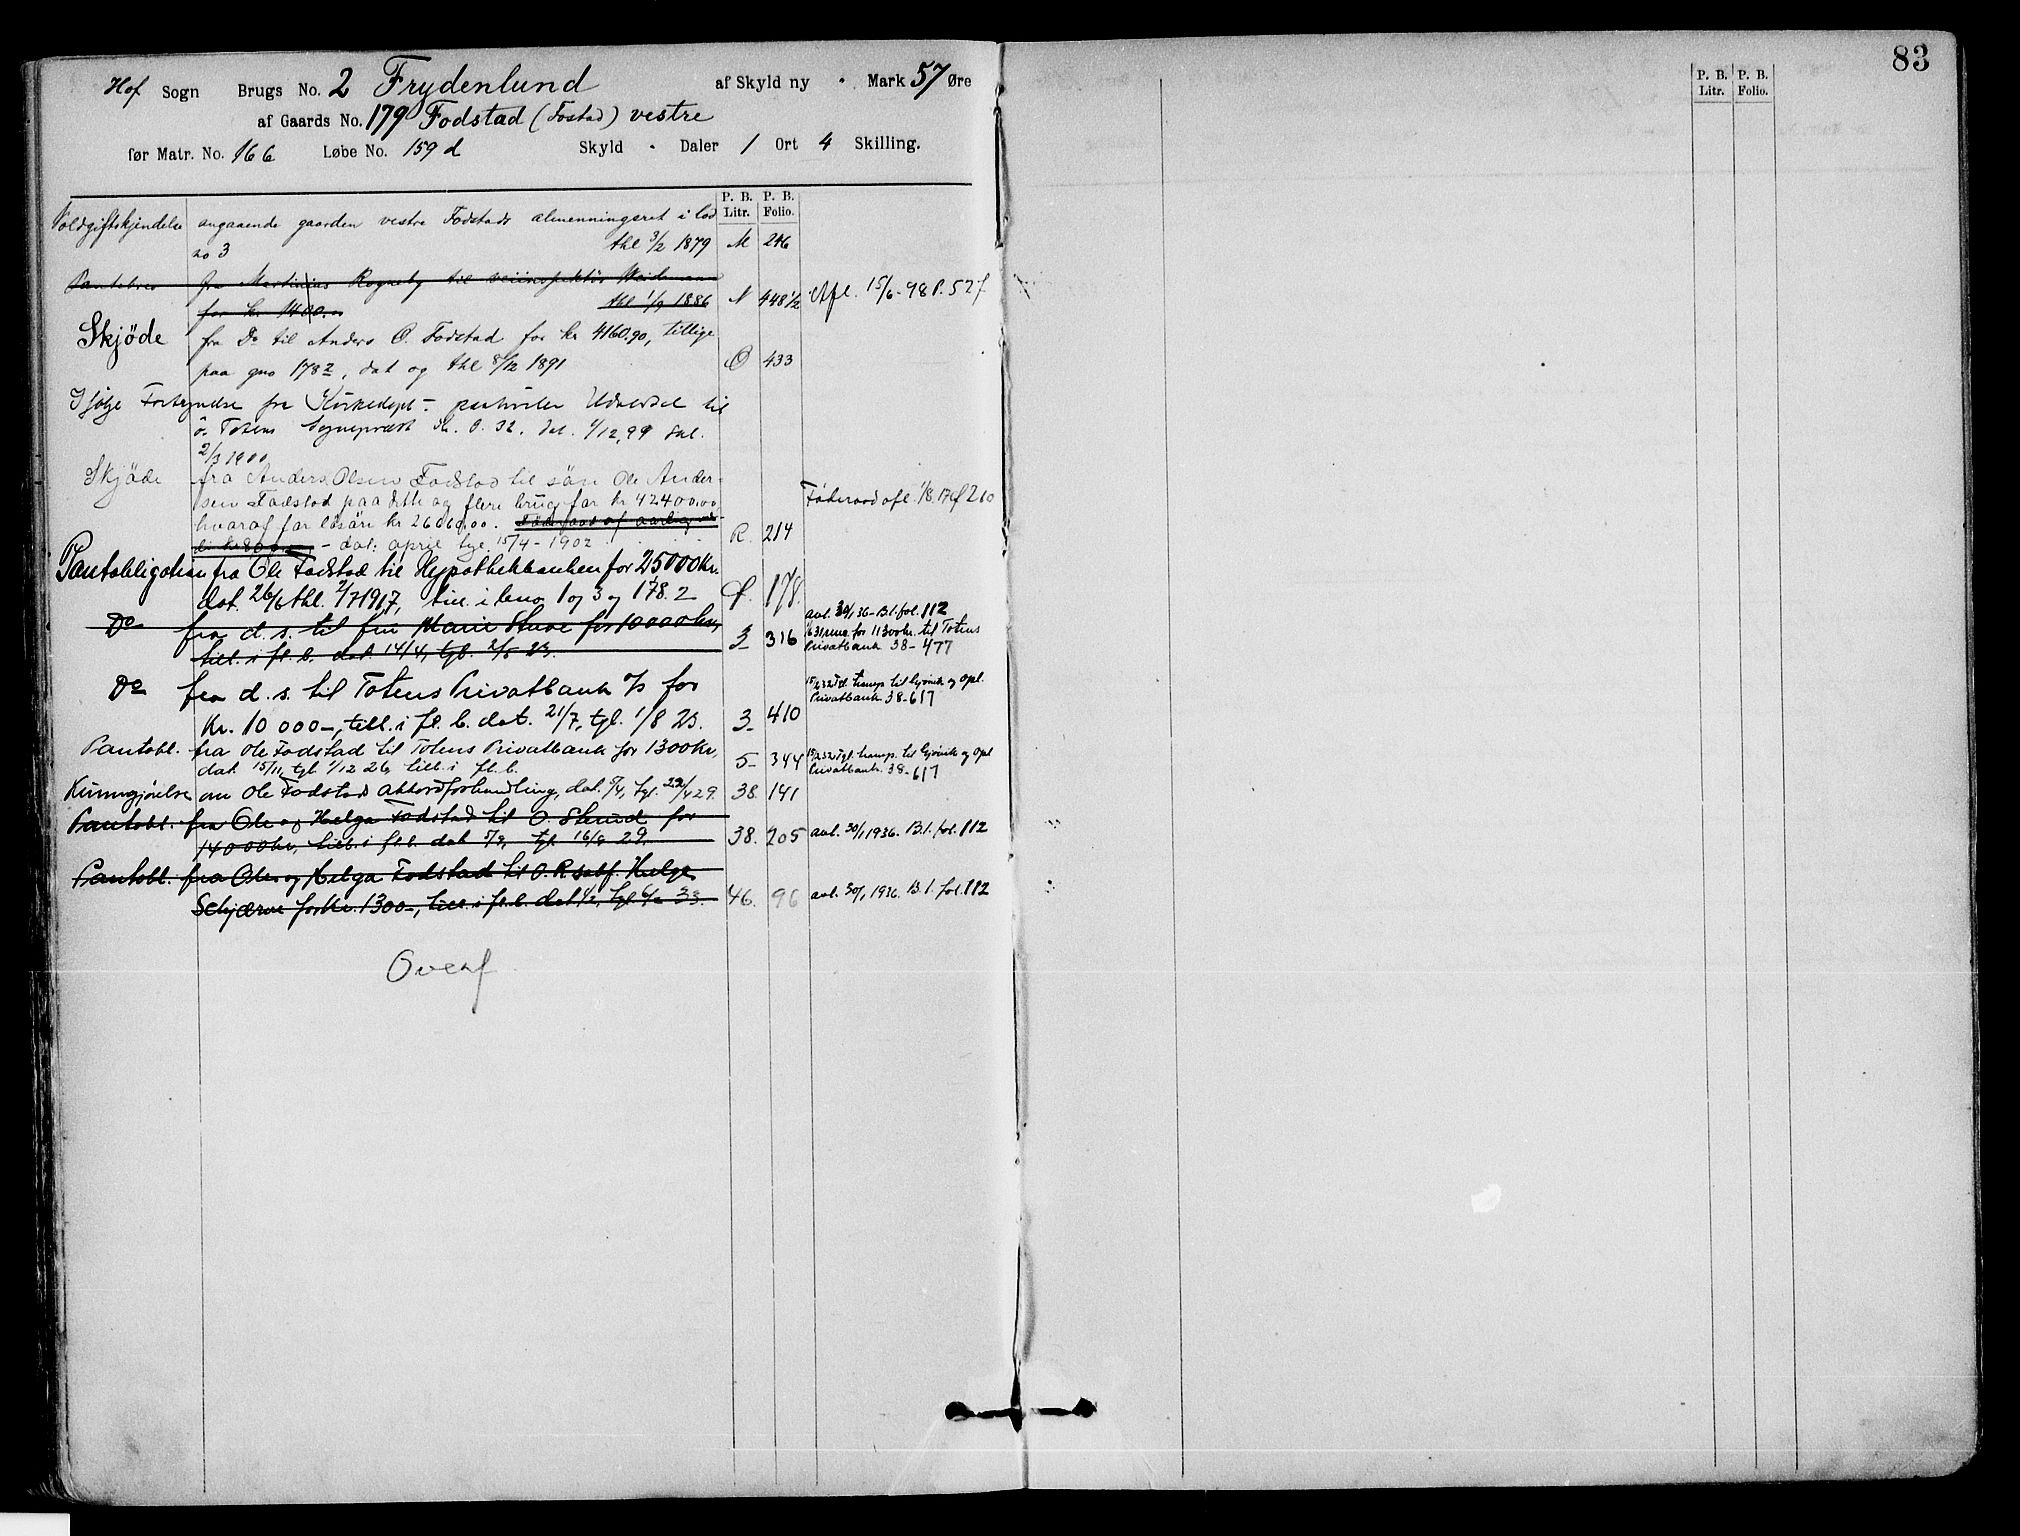 83
Hof Sogn Brugs No. 2 Frydenlund af Skyld ny - Mark 57 Øre
af Gaards No. 179 Fodstad (Fostad) vestre
før Matr. No. 166 Løbe No. 159 d Skyld - Daler 1 Ort 4 Skilling.
P. B. Litr. P. B. Folio.
P. B. Litr. P. B. Folio.
Voldgiftskjendelse angaaende gaarden vestre Fodstads almenningsret i lod
no 3 thl 3/2 1879 M 246
Pantebrev fra Martinius Rogneby til veiinspektör
for kr. 1400.00 thl 1/9 1886 N 448 1/2 Afl. 15/6-98 P. 527
Skjöde fra Do til Anders O. Fodstad for kr 4160.90, tillige
paa gno 178 2, dat og thl 8/12 1891 O 433
Ifølge Fortegnelse fra Kirkedept. til
ö. Totens Sognepræst Sk. 0. 32. dat. 1/12.99
2/3 1900
Skjöde fra Anders Olsen Fodstad til sön Ole Ander-
sen Fodstad paa dette og flere brug for kr 42400.00
hvoraf for lösöre kr 26060.00. Föderaad af aarlig vær-
di kr 800.00 - dat: april tgl. 15/4-1902 R. 214 Föderaad afl 1/8 17 Ø 210
Pantobligation fra Ole Fodstad til Hypothekbanken for 25000 kr.
dat. 26/6 thl. 2/7 1917, till. i bno 1 og 3 og 178.2 Ø. 178
Do fra d. s. til fru Marie Stuve for 10000 kr, 3 316 avl. 30/1 36 - B.1. fol. 112
till. i fl. b. dat. 14/4, tgl. 2/5 23. for 11300 kr. til Totens
Privatbank 38-477
Do fra d. s. til Totens Privatbank A/S for
Kr. 10 000-, till. i fl. b. dat. 21/7, tgl. 1/8 23. 3 410 15/2 32 tgl. transp. til Gjövik og Opl.
Privatbank. 38-617
Pantobl. fra Ole Fodstad til Totens Privatbank for 1300 kr,
dat. 15/11, tgl. 1/12 26, till. i fl. b. 5 344 15/2 32 tgl. transp. til Gjövik og Opl.
Privatbank. 38-617
Kunngjørelse om Ole Fodstads akkordforhandling, dat. 5/4, tgl. 22/4 29. 38. 141
Pantobl. fra Ole og Helga Fodstad til O. Skrud for
14000 kr, till. i fl. b. dat 5/9, tgl. 16/9 29. 38. 205 avl. 30/1 1936. B.1. fol. 112
Pantobl. fra Ole og Helga Fodstad til O.R.sakf. Helge
Schjærve for kr. 1300-, till. i fl. b. dat 1/2, tgl. 6/2 33. 46. 96 avl. 30/1 1936. B.1. fol. 112
Overf